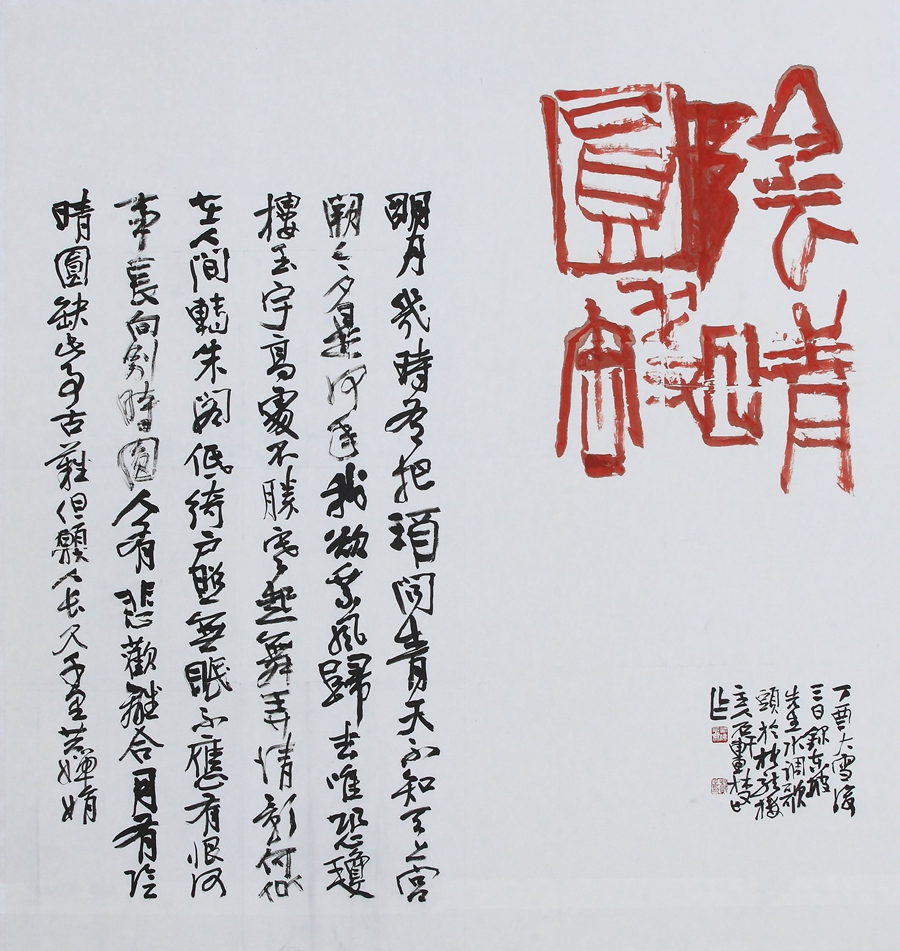 陰晴
圓缺
明月幾時有把酒問青天不知天上宮
闕今夕是何年我欲乘風歸去唯恐瓊
樓玉宇高處不勝寒起舞弄清影何似
在人間轉朱閣低綺戶照無眠不應有恨何
事長向別時圓人有悲歡離合月有陰
晴圓缺此事古難但願人長久千里共嬋娟
丁酉大雪後
三日錄東坡
先生水調歌
頭於樓
石軒